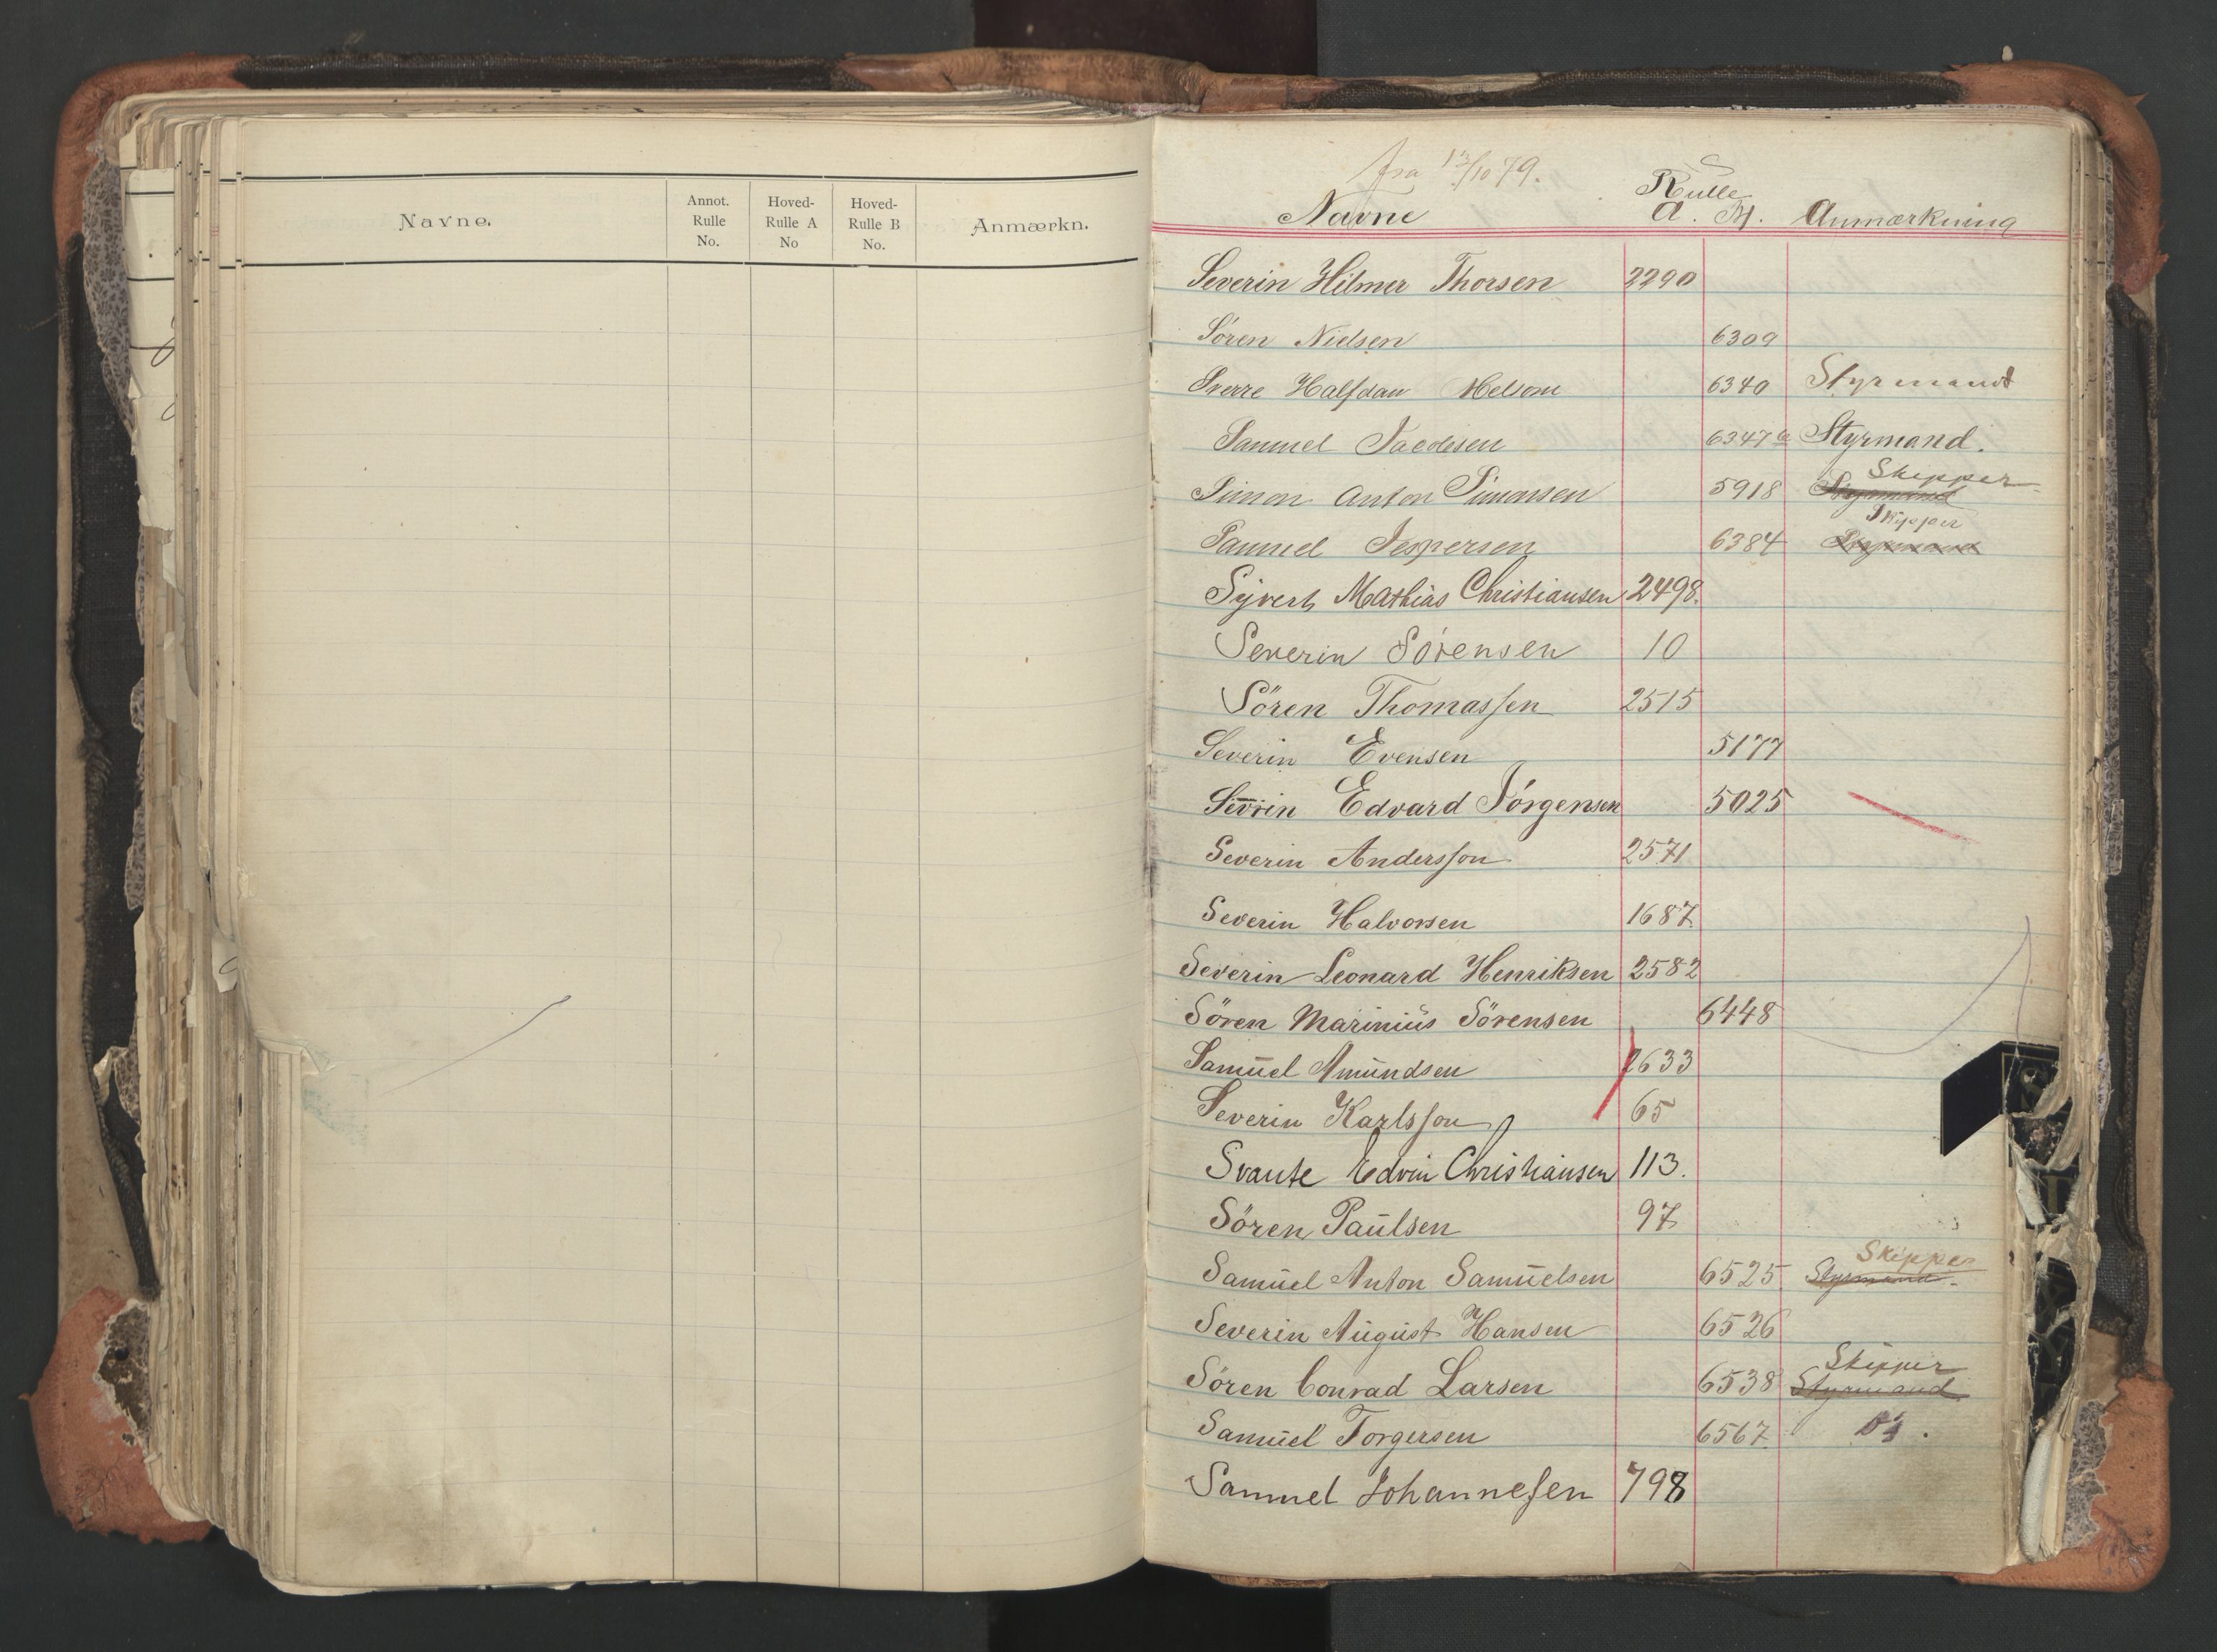 Navne.
Annot. Rulle No.
Hoved-Rulle A No
Hoved-Rulle B No.
Anmærkn.
fra 13/10 79.
Rulle
Navne A. H. Anmærkning
Severin Hilmer Thorsen 2290
Sören Nielsen 6309
Sverre Halfdan Melsom 6340 Styrmand
Samuel Jacobsen 6347 a Styrmand.
Skipper
Simon Anton Simonsen 5918 Styrmand
Skipper
Samuel Jespersen 6384 Styrmand
Syvert Mathias Christiansen 2498.
Severin Sörensen 10
Sören Thomassen 2515
Severin Evensen 5177
Severin Edvard Jörgensen 5025
Severin Andersson 2571
Severin Halvorsen 1687
Severin Leonard Henriksen 2582
Sören Marinius Sörensen 6448
Samuel Amundsen 2633
Severin Karlsson 65
Svante Edvin Christiansen 113.
Sören Paulsen 97
Skipper
Samuel Anton Samuelsen 6525 Styrmand.
Severin August Hansen 6526
Skipper
Sören Conrad Larsen 6538 Styrmand
Samuel Torgersen 6567
Samuel Johannesen 798